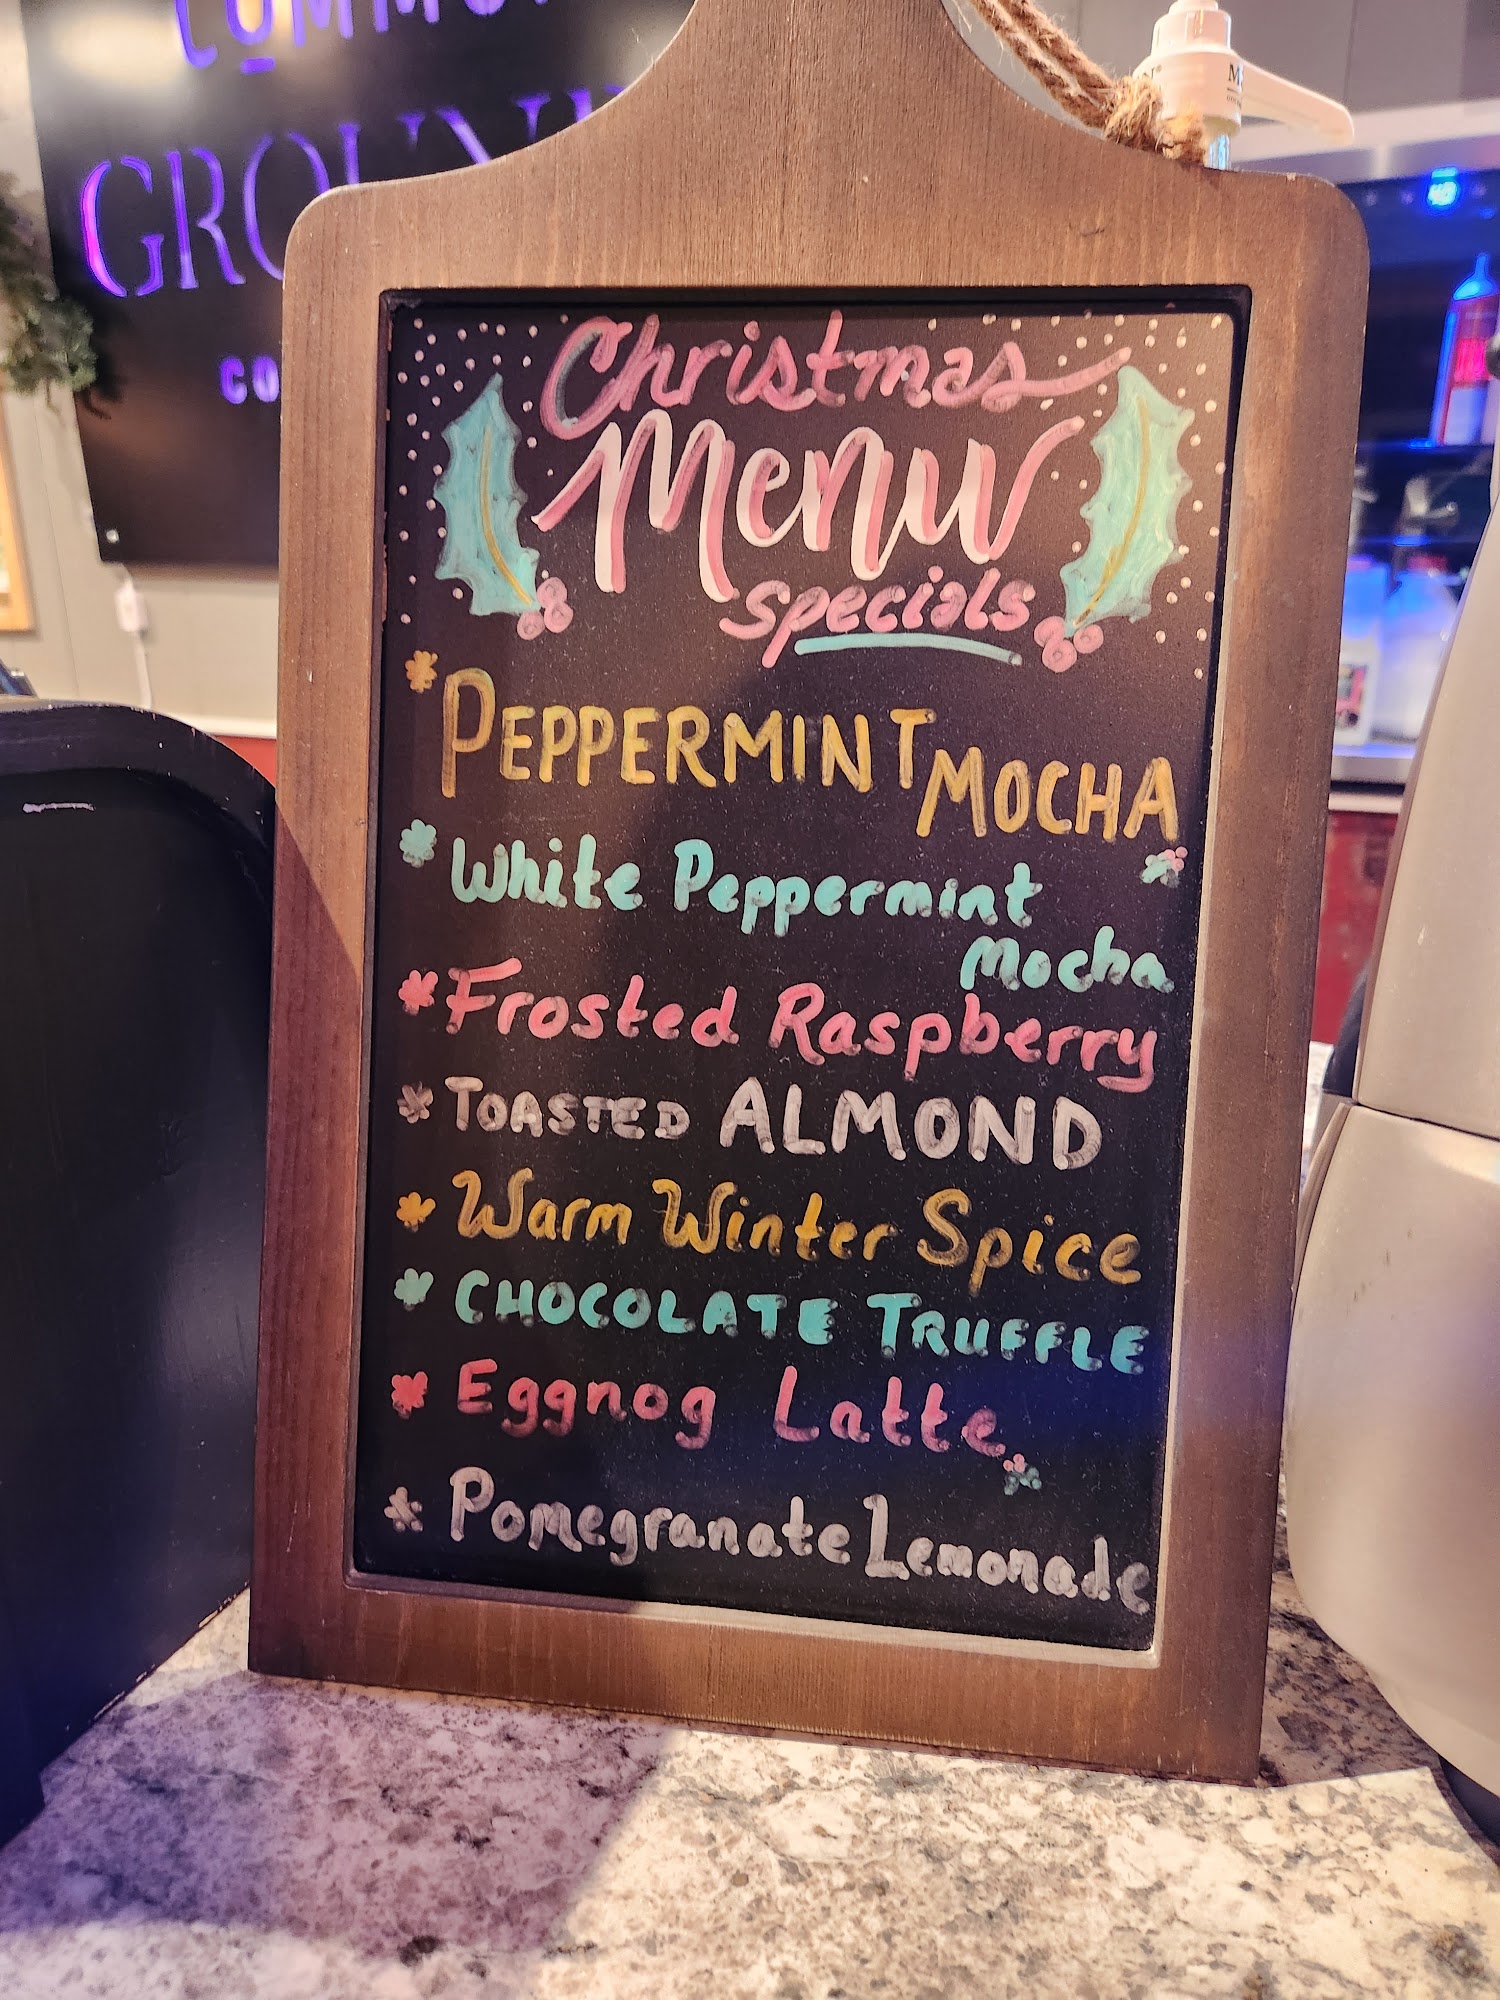 GROUN
CO
Christmas
Menu
specials
PEPPERMINT MOCHA
White Peppermint
Mocha
Frosted Raspberry
TOASTED ALMOND
Warm Winter Spice
CHOCOLATE TRUFFLE
Eggnog Latte
Pomegranate Lemonade